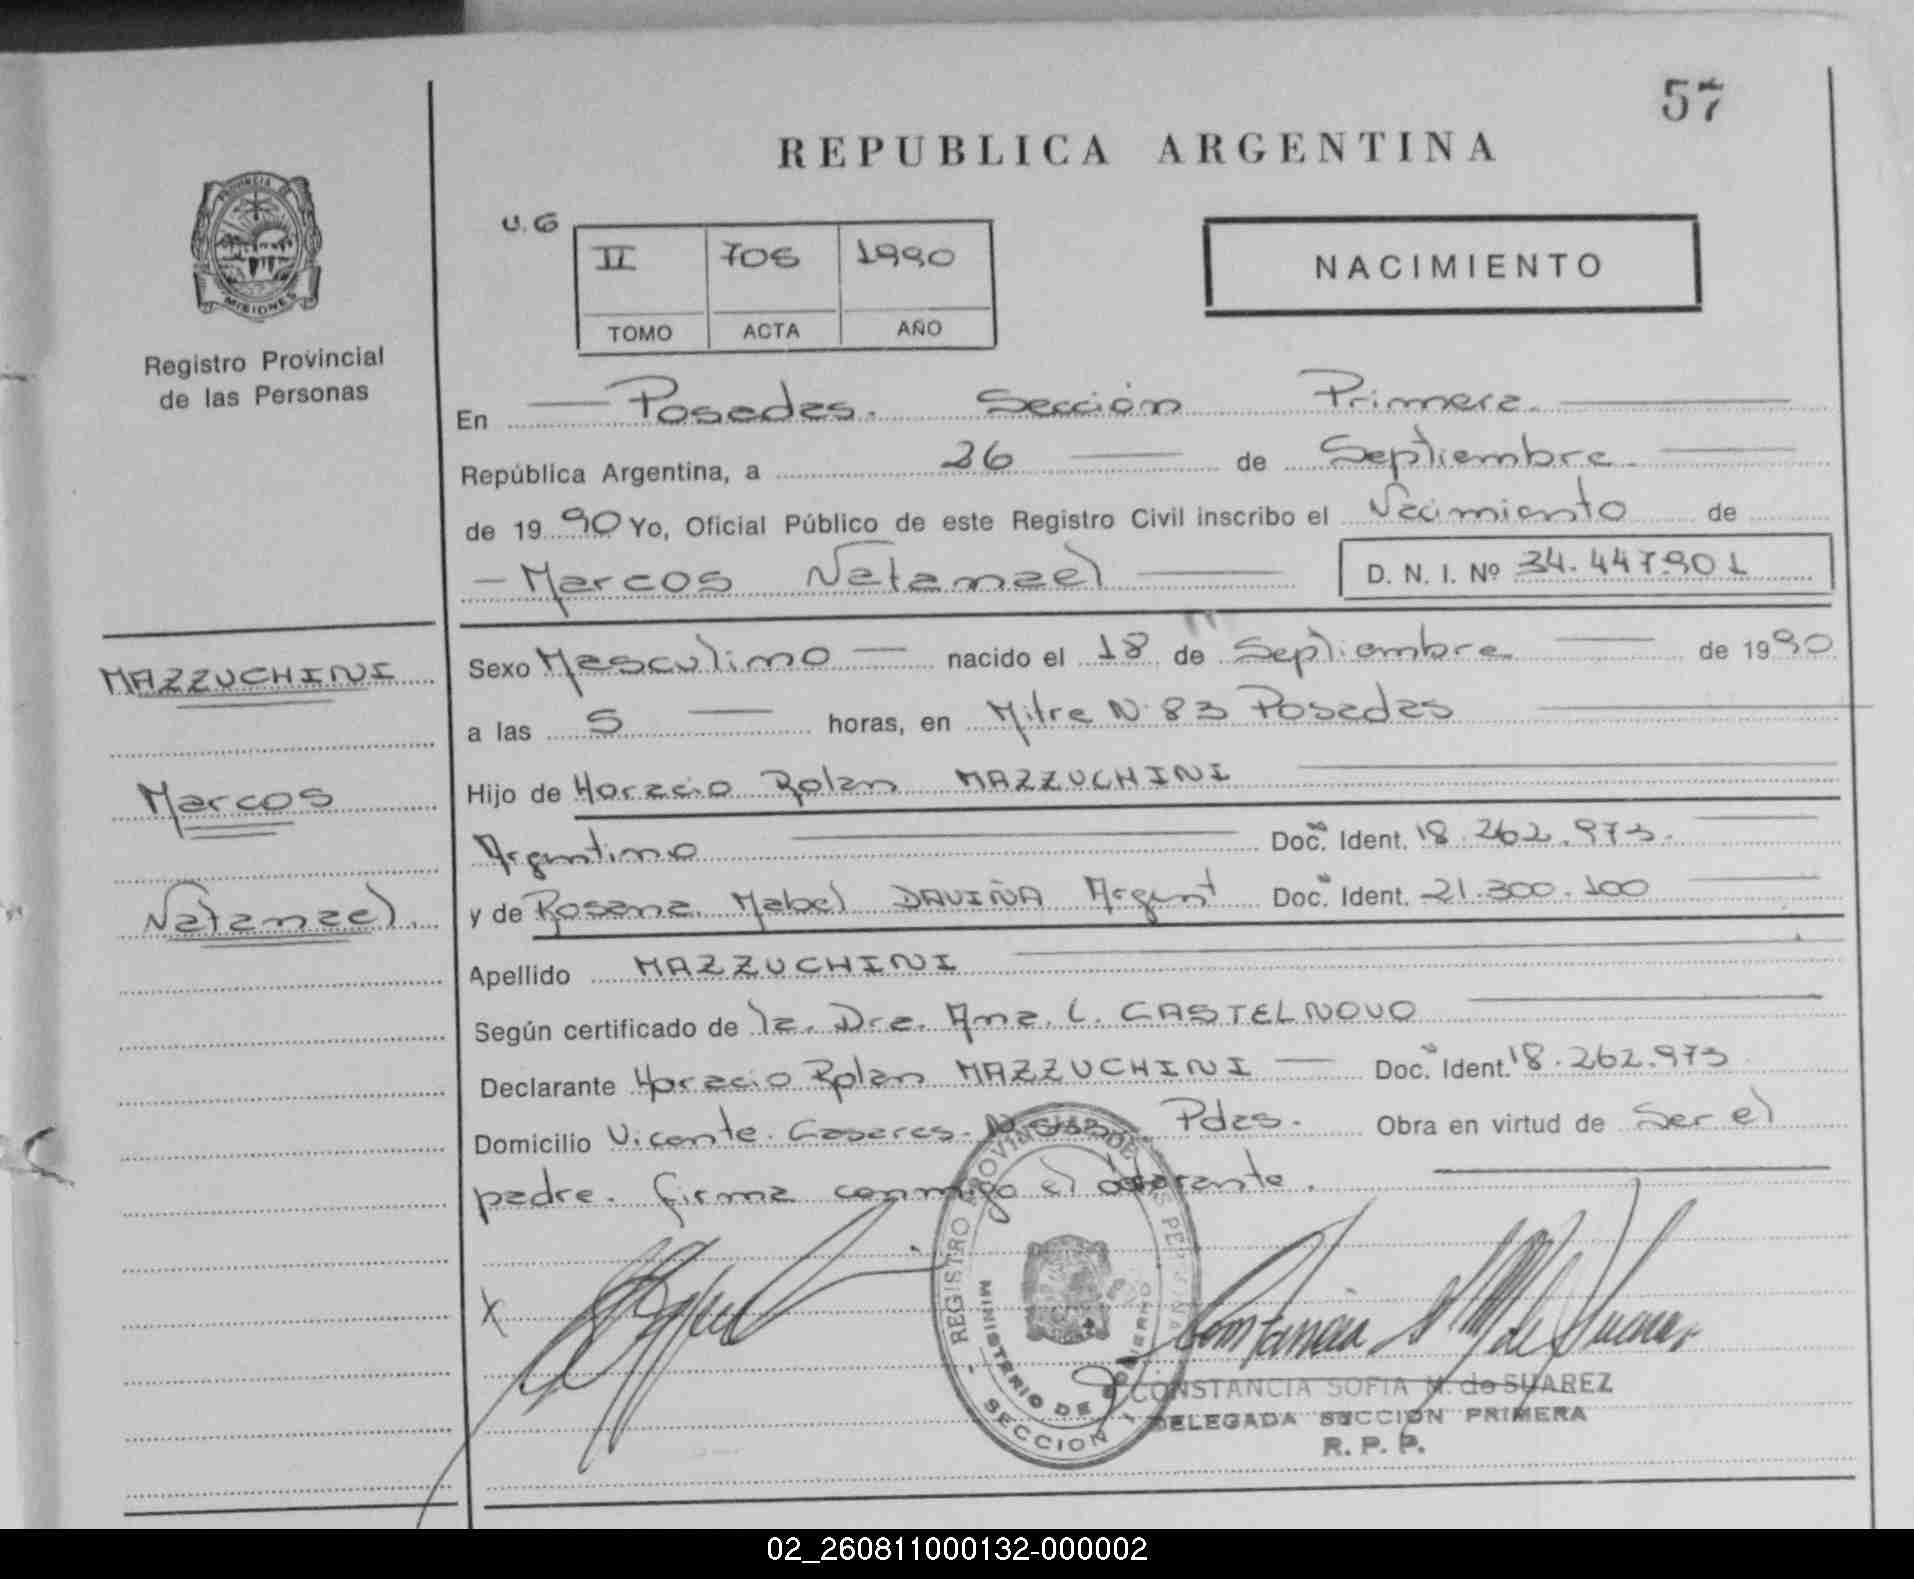 57
REPUBLICA ARGENTINA
PROVINCIA DE
MISIONES
Registro Provincial
de las Personas
U. G
II 706 1990
TOMO ACTA AÑO
NACIMIENTO
En Posadas. Sección Primera.
República Argentina, a 26 de Septiembre
de 1990 Yo, Oficial Público de este Registro Civil inscribo el Nacimiento de
Marcos Natanael D. N. I. Nº 34.447.901
MAZZUCHINI
Marcos
Natanael.
Sexo Masculino nacido el 18 de Septiembre de 1990
a las 5 horas, en Mitre N 83 Posadas
Hijo de Horacio Rolan MAZZUCHINI
Argentino Doc. Ident. 18.262.973.
y de Rosana Mabel DAVIÑA Argent Doc. Ident. 21.300.100
Apellido MAZZUCHINI
Según certificado de la. Dra. Ana. L. CASTELNOVO
Declarante Horacio Rolan MAZZUCHINI Doc. Ident. 18.262.973
Domicilio Vicente. Casares. Pdas. Obra en virtud de Ser el
padre. firma conmigo el
X
REGISTRO PROVINCIAL DE LAS PERSONAS
MINISTERIO DE GOBIERNO
SECCION 1
CONSTANCIA SOFIA M. de SUAREZ
DELEGADA SECCION PRIMERA
R. P. P.
02_260811000132-000002